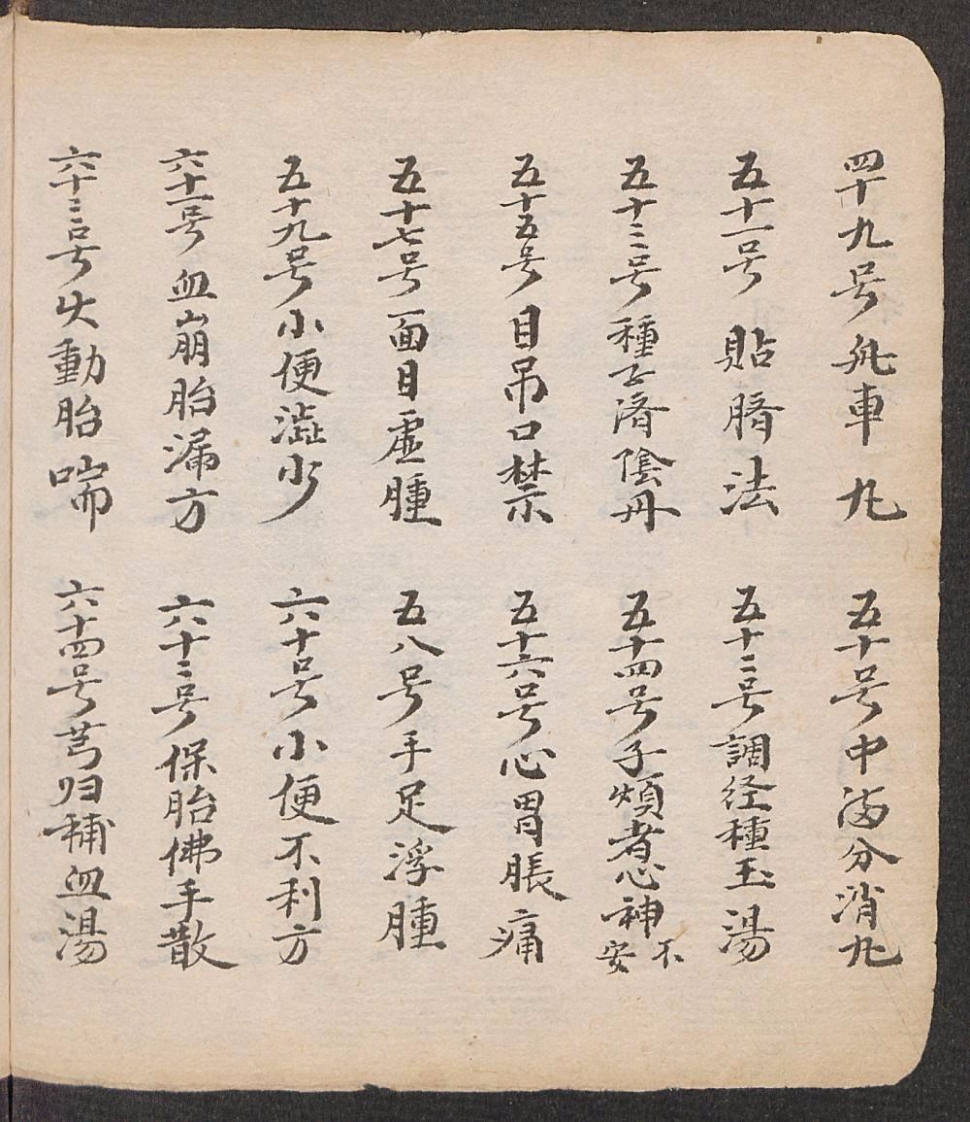 四十九号 舟車丸 五十号中满分消丸
五十一号 貼臍法 五十二号調径種玉湯
五十三号種子済陰丹 五十四号子煩者心神不安
五十五号 目吊口禁 五十六号心胃脹痛
五十七号面目虚腫 五八号手足浮腫
五十九号小便澁少 六十号小便不利方
六十一号血崩胎漏方 六十二号保胎佛手散
六十三号火動胎喘 六十四号芎归補血湯